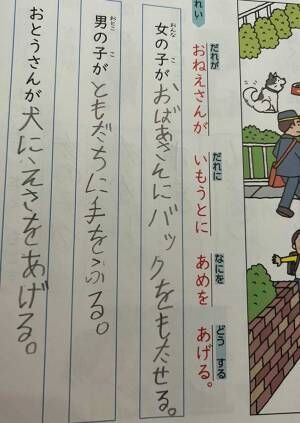 れい
だれが だれに なにを どう する
おねえさんが いもうとに あめを あげる。
おんな こ
女の子がおばあさんにバックをもたせる。
おとこ こ
男の子がともだちに手をふる。
おとうさんが犬にえさをあげる。